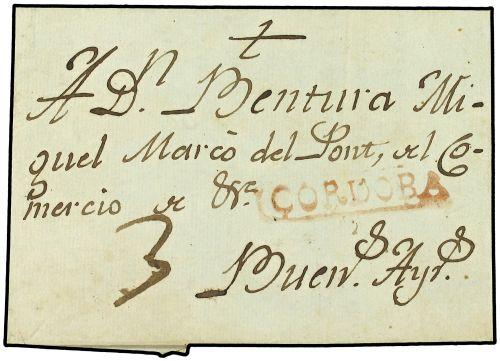 A D.ⁿ Bentura Mi-
guel Marcò del Pont, del Co-
mercio de &ᵃ
CORDOBA
3
Buen.ˢ Ayr.ˢ